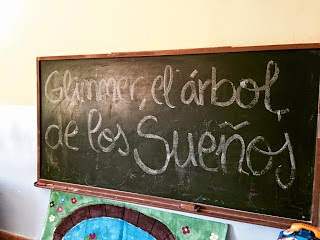 Glimmer, el árbol
de los Sueños